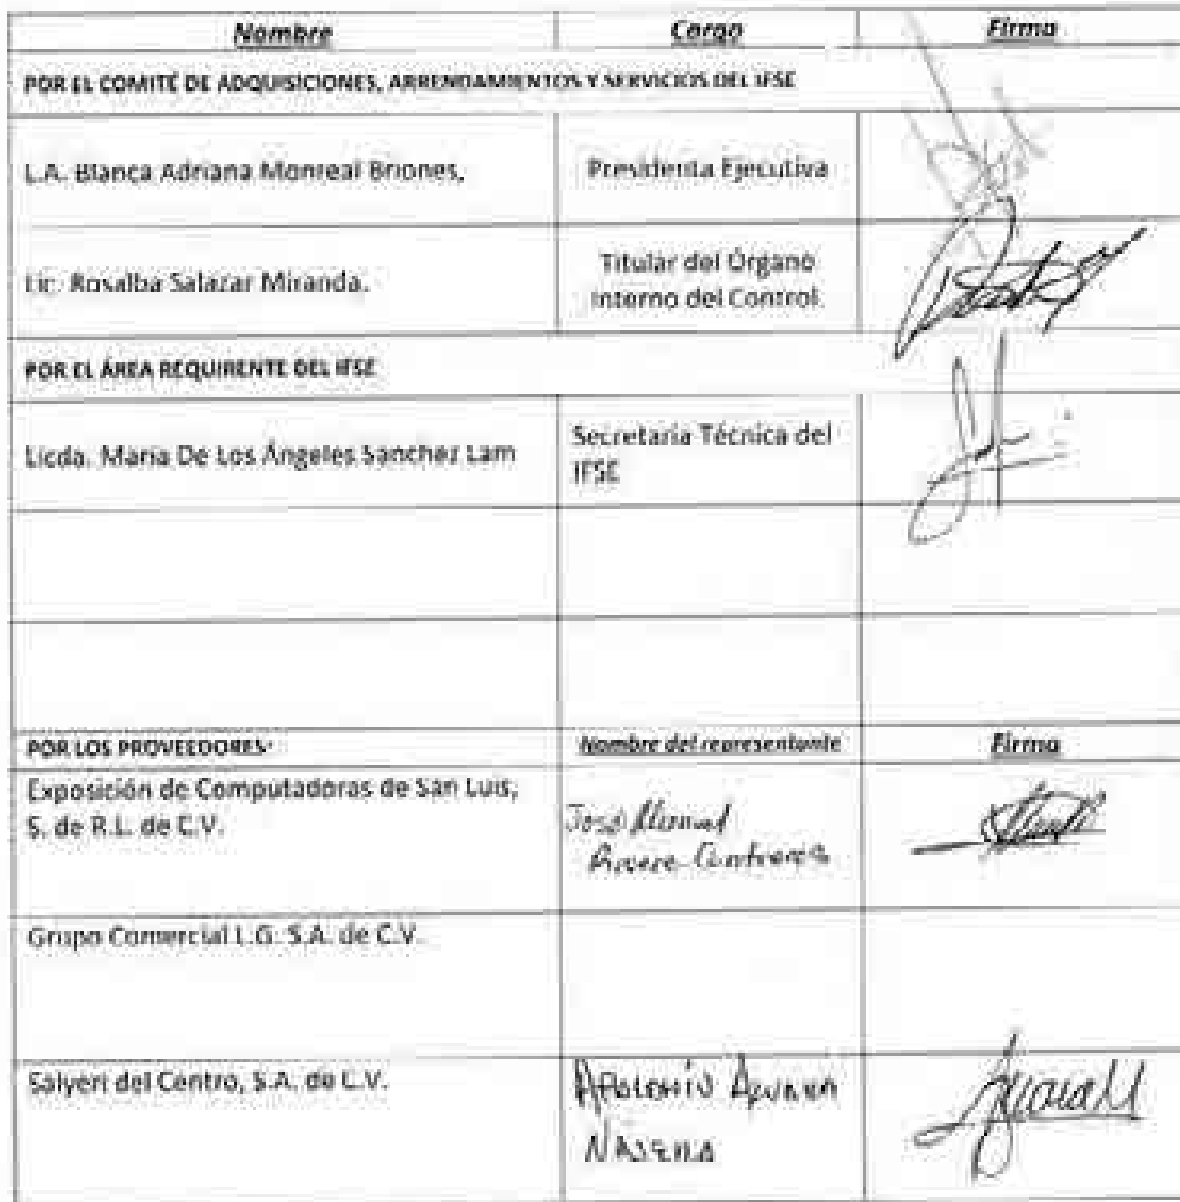 Nombre Cargo Firma
POR EL COMITÉ DE ADQUISICIONES, ARRENDAMIENTOS Y SERVICIOS DEL IFSE
L.A. Blanca Adriana Monreal Briones. Presidenta Ejecutiva
Lic. Rosalba Salazar Miranda. Titular del Órgano
Interno del Control.
POR EL ÁREA REQUIRENTE DEL IFSE
Licda. María De Los Ángeles Sánchez Lam Secretaria Técnica del
IFSE
POR LOS PROVEEDORES: Nombre del representante Firma
Exposición de Computadoras de San Luis,
S. de R.L. de C.V. José Manuel
Contreras
Grupo Comercial L.G. S.A. de C.V.
Salyeri del Centro, S.A. de C.V. Apolonio